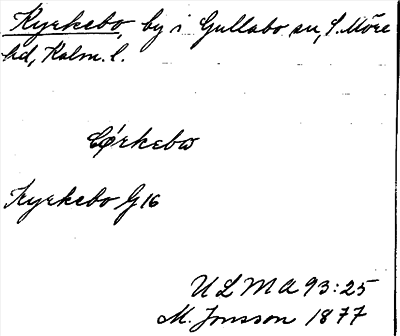 Kyrkebo, by i Gullabo sn, S. Möre
hd, Kalm. l.
Kyrkebo G16
ULMA 93:25
M. Jonsson 1877